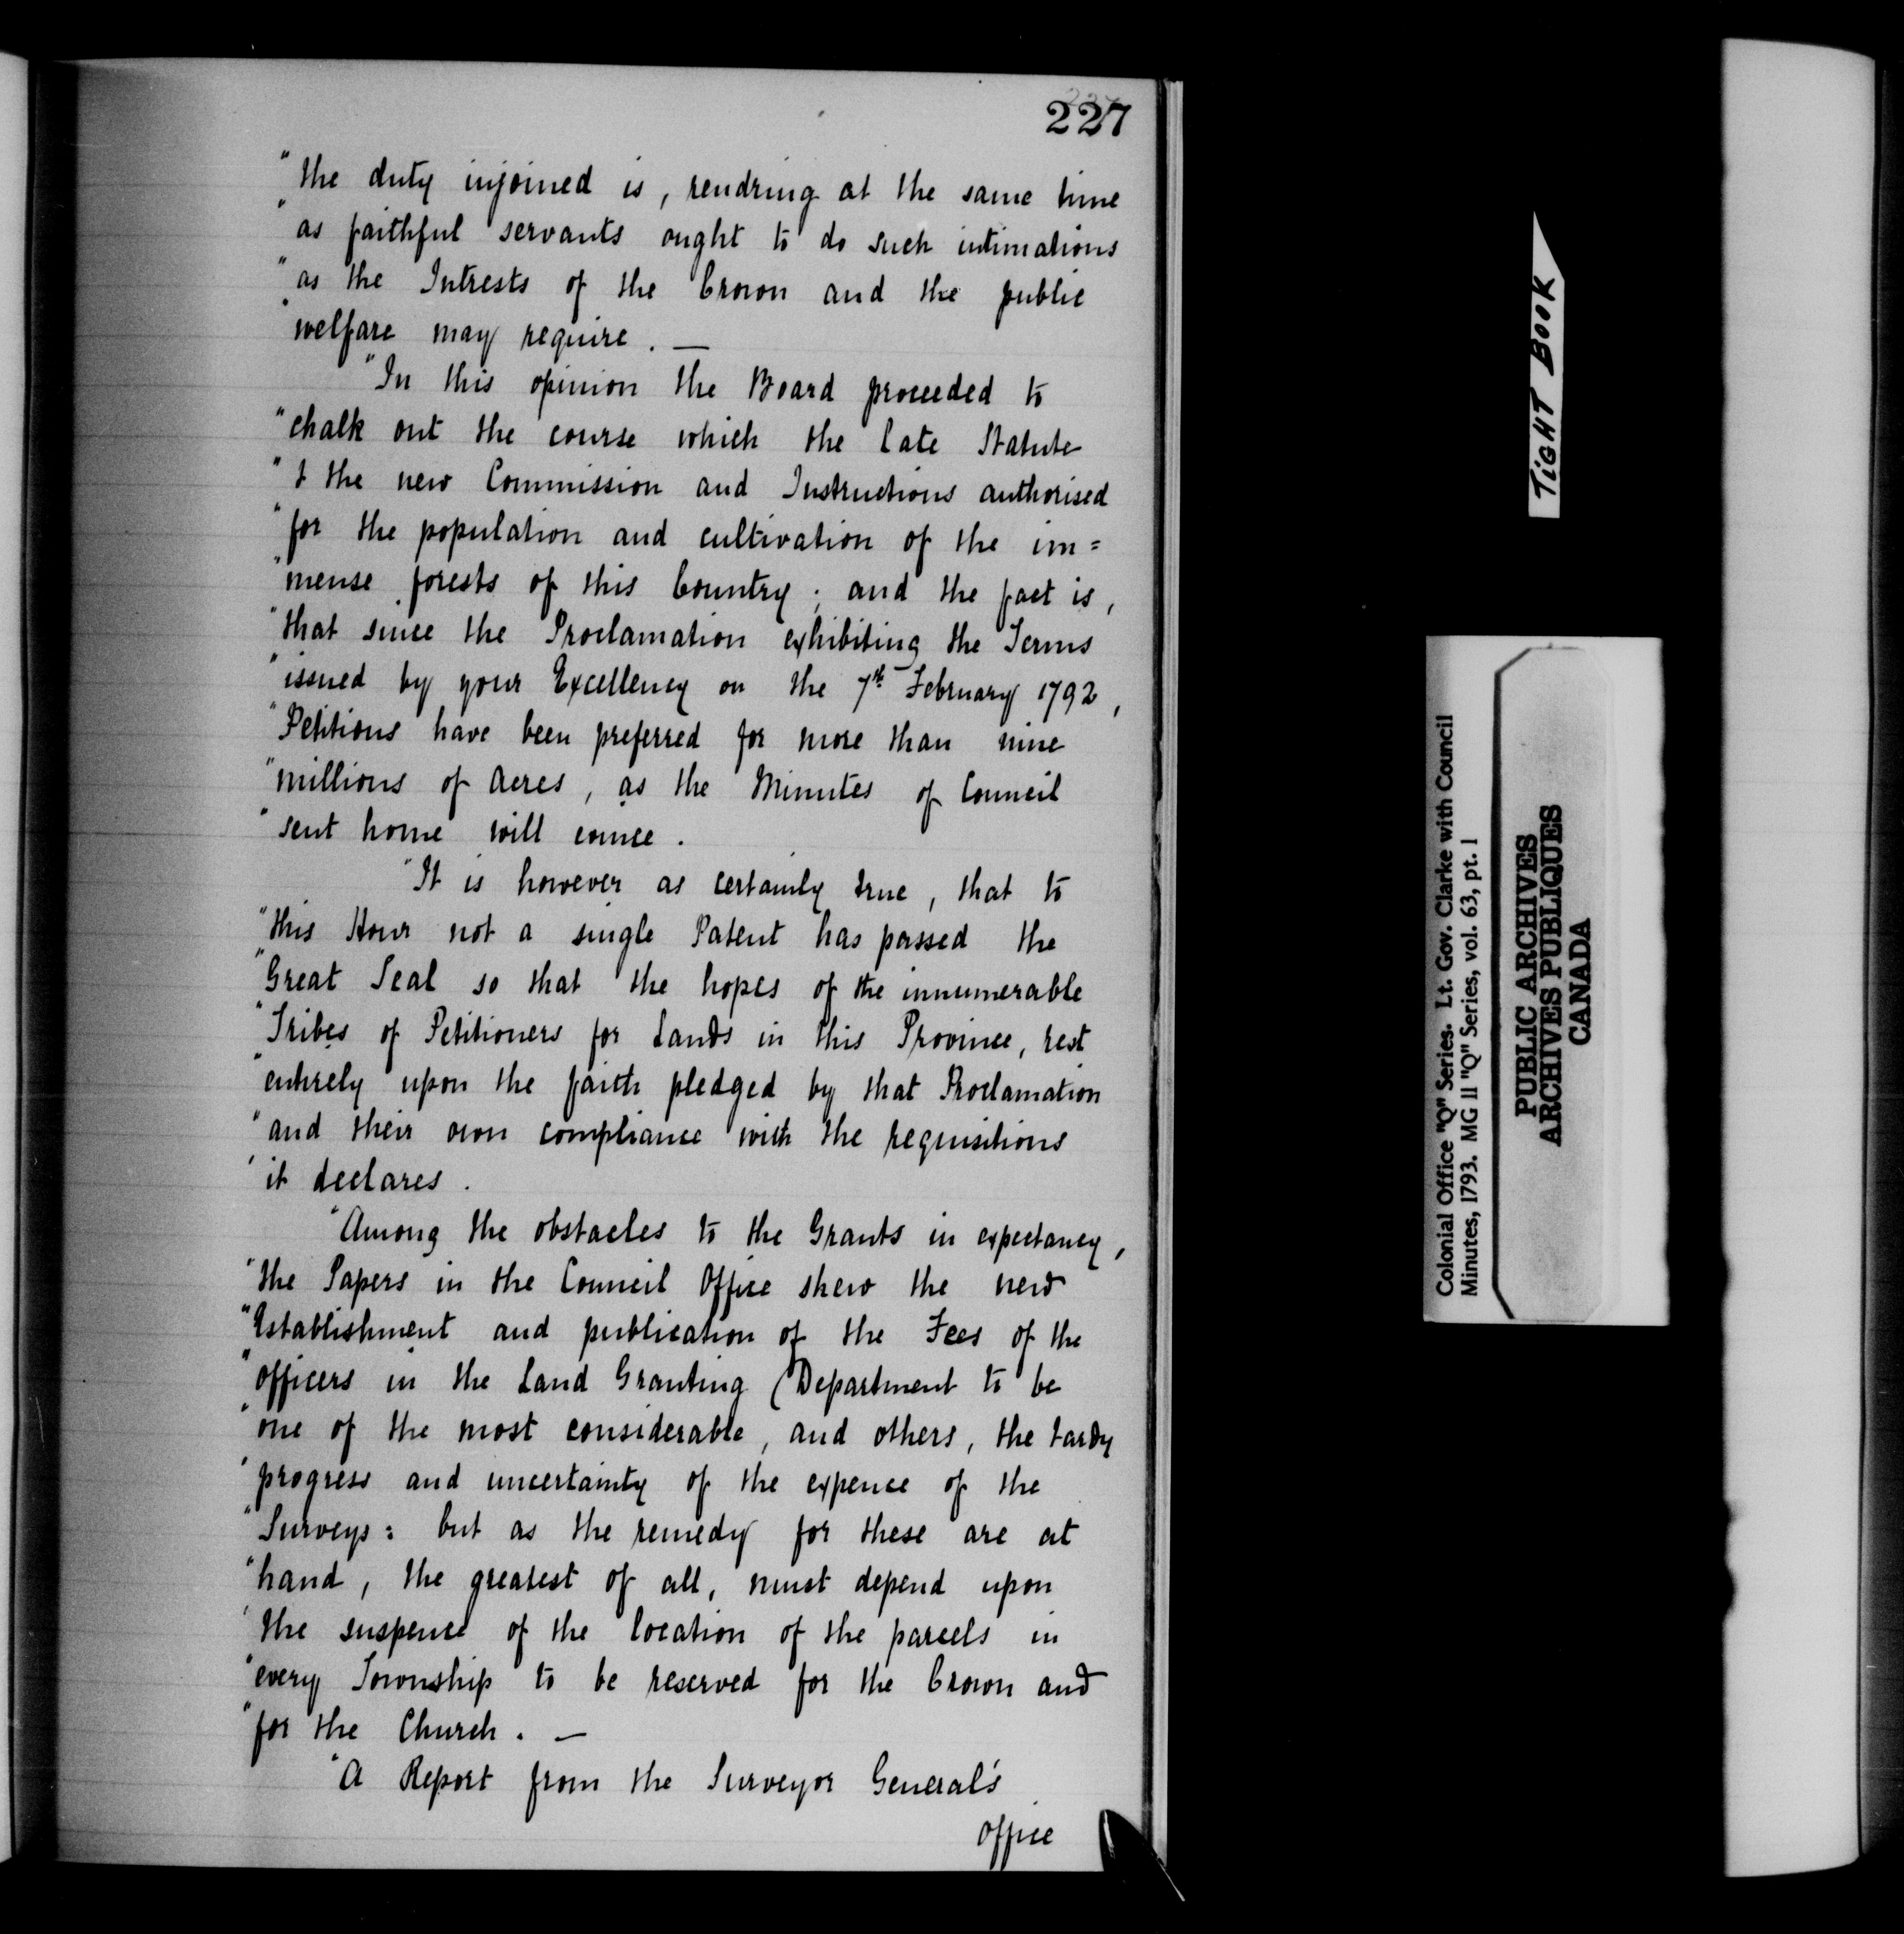 227
"the duty injoined is, rendring at the same time
"as faithful servants ought to do such intimations
"as the Intrests of the Crown and the public
"welfare may require. —
"In this opinion the Board proceeded to
"chalk out the course which the late Statute
"& the new Commission and Instructions authorised
"for the population and cultivation of the im=
"mense forests of this Country; and the fact is,
"that since the Proclamation exhibiting the Terms
"issued by your Excellency on the 7th February 1792,
"Petitions have been preferred for more than nine
"millions of acres, as the Minutes of Council
"sent home will evince.
"It is however as certainly true, that to
"this Hour not a single Patent has passed the
"Great Seal so that the hopes of the innumerable
"Tribes of Petitioners for Lands in this Province, rest
"entirely upon the faith pledged by that Proclamation
"and their own compliance with the requisitions
"it declares.
"Among the obstacles to the Grants in expectancy,
"the Papers in the Council Office shew the new
"Establishment and publication of the Fees of the
"officers in the Land Granting Department to be
"one of the most considerable, and others, the tardy
"progress and uncertainty of the expence of the
"Surveys: but as the remedy for these are at
"hand, the greatest of all, must depend upon
"the suspence of the location of the parcels in
"every Township to be reserved for the Crown and
"for the Church. —
"A Report from the Surveyor General's
office
TIGHT BOOK
Colonial Office "Q" Series. Lt. Gov. Clarke with Council
Minutes, 1793. MG 11 "Q" Series, vol. 63, pt. 1
PUBLIC ARCHIVES
ARCHIVES PUBLIQUES
CANADA